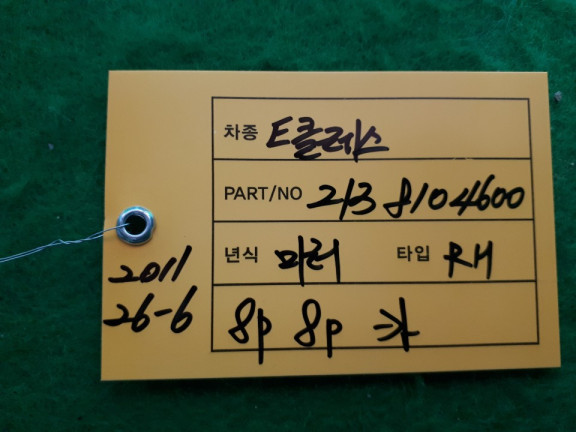 차종 E클래스
PART/NO 213 810 4600
년식 미러 타입 RH
2011
26-6
8P 8P